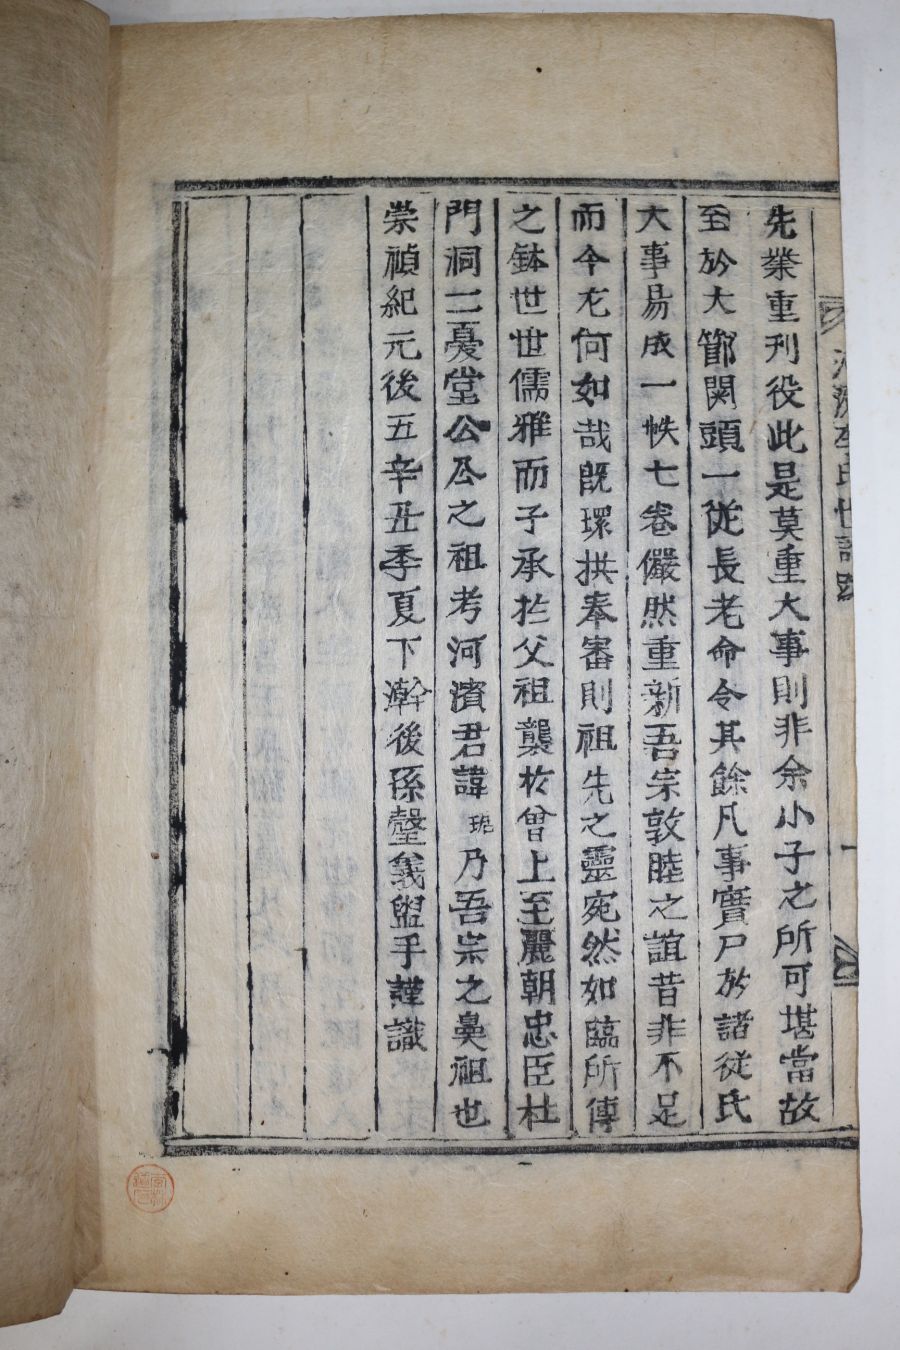 先業重刊役此是莫重大事則非余小子之所可堪當故
至於大節関頭一從長老命令其餘凡事實尸於諸從氏
大事易成一帙七卷儼然重新吾宗敦睦之誼昔非不足
而今尤何如哉既環拱奉審則祖先之靈宛然如臨所傳
之鉢世世儒雅而子承於父祖襲於曾上至麗朝忠臣杜
門洞二憂堂公公之祖考河濱君諱琓乃吾宗之鼻祖也
崇禎紀元後五辛丑季夏下澣後孫馨義盥手謹識